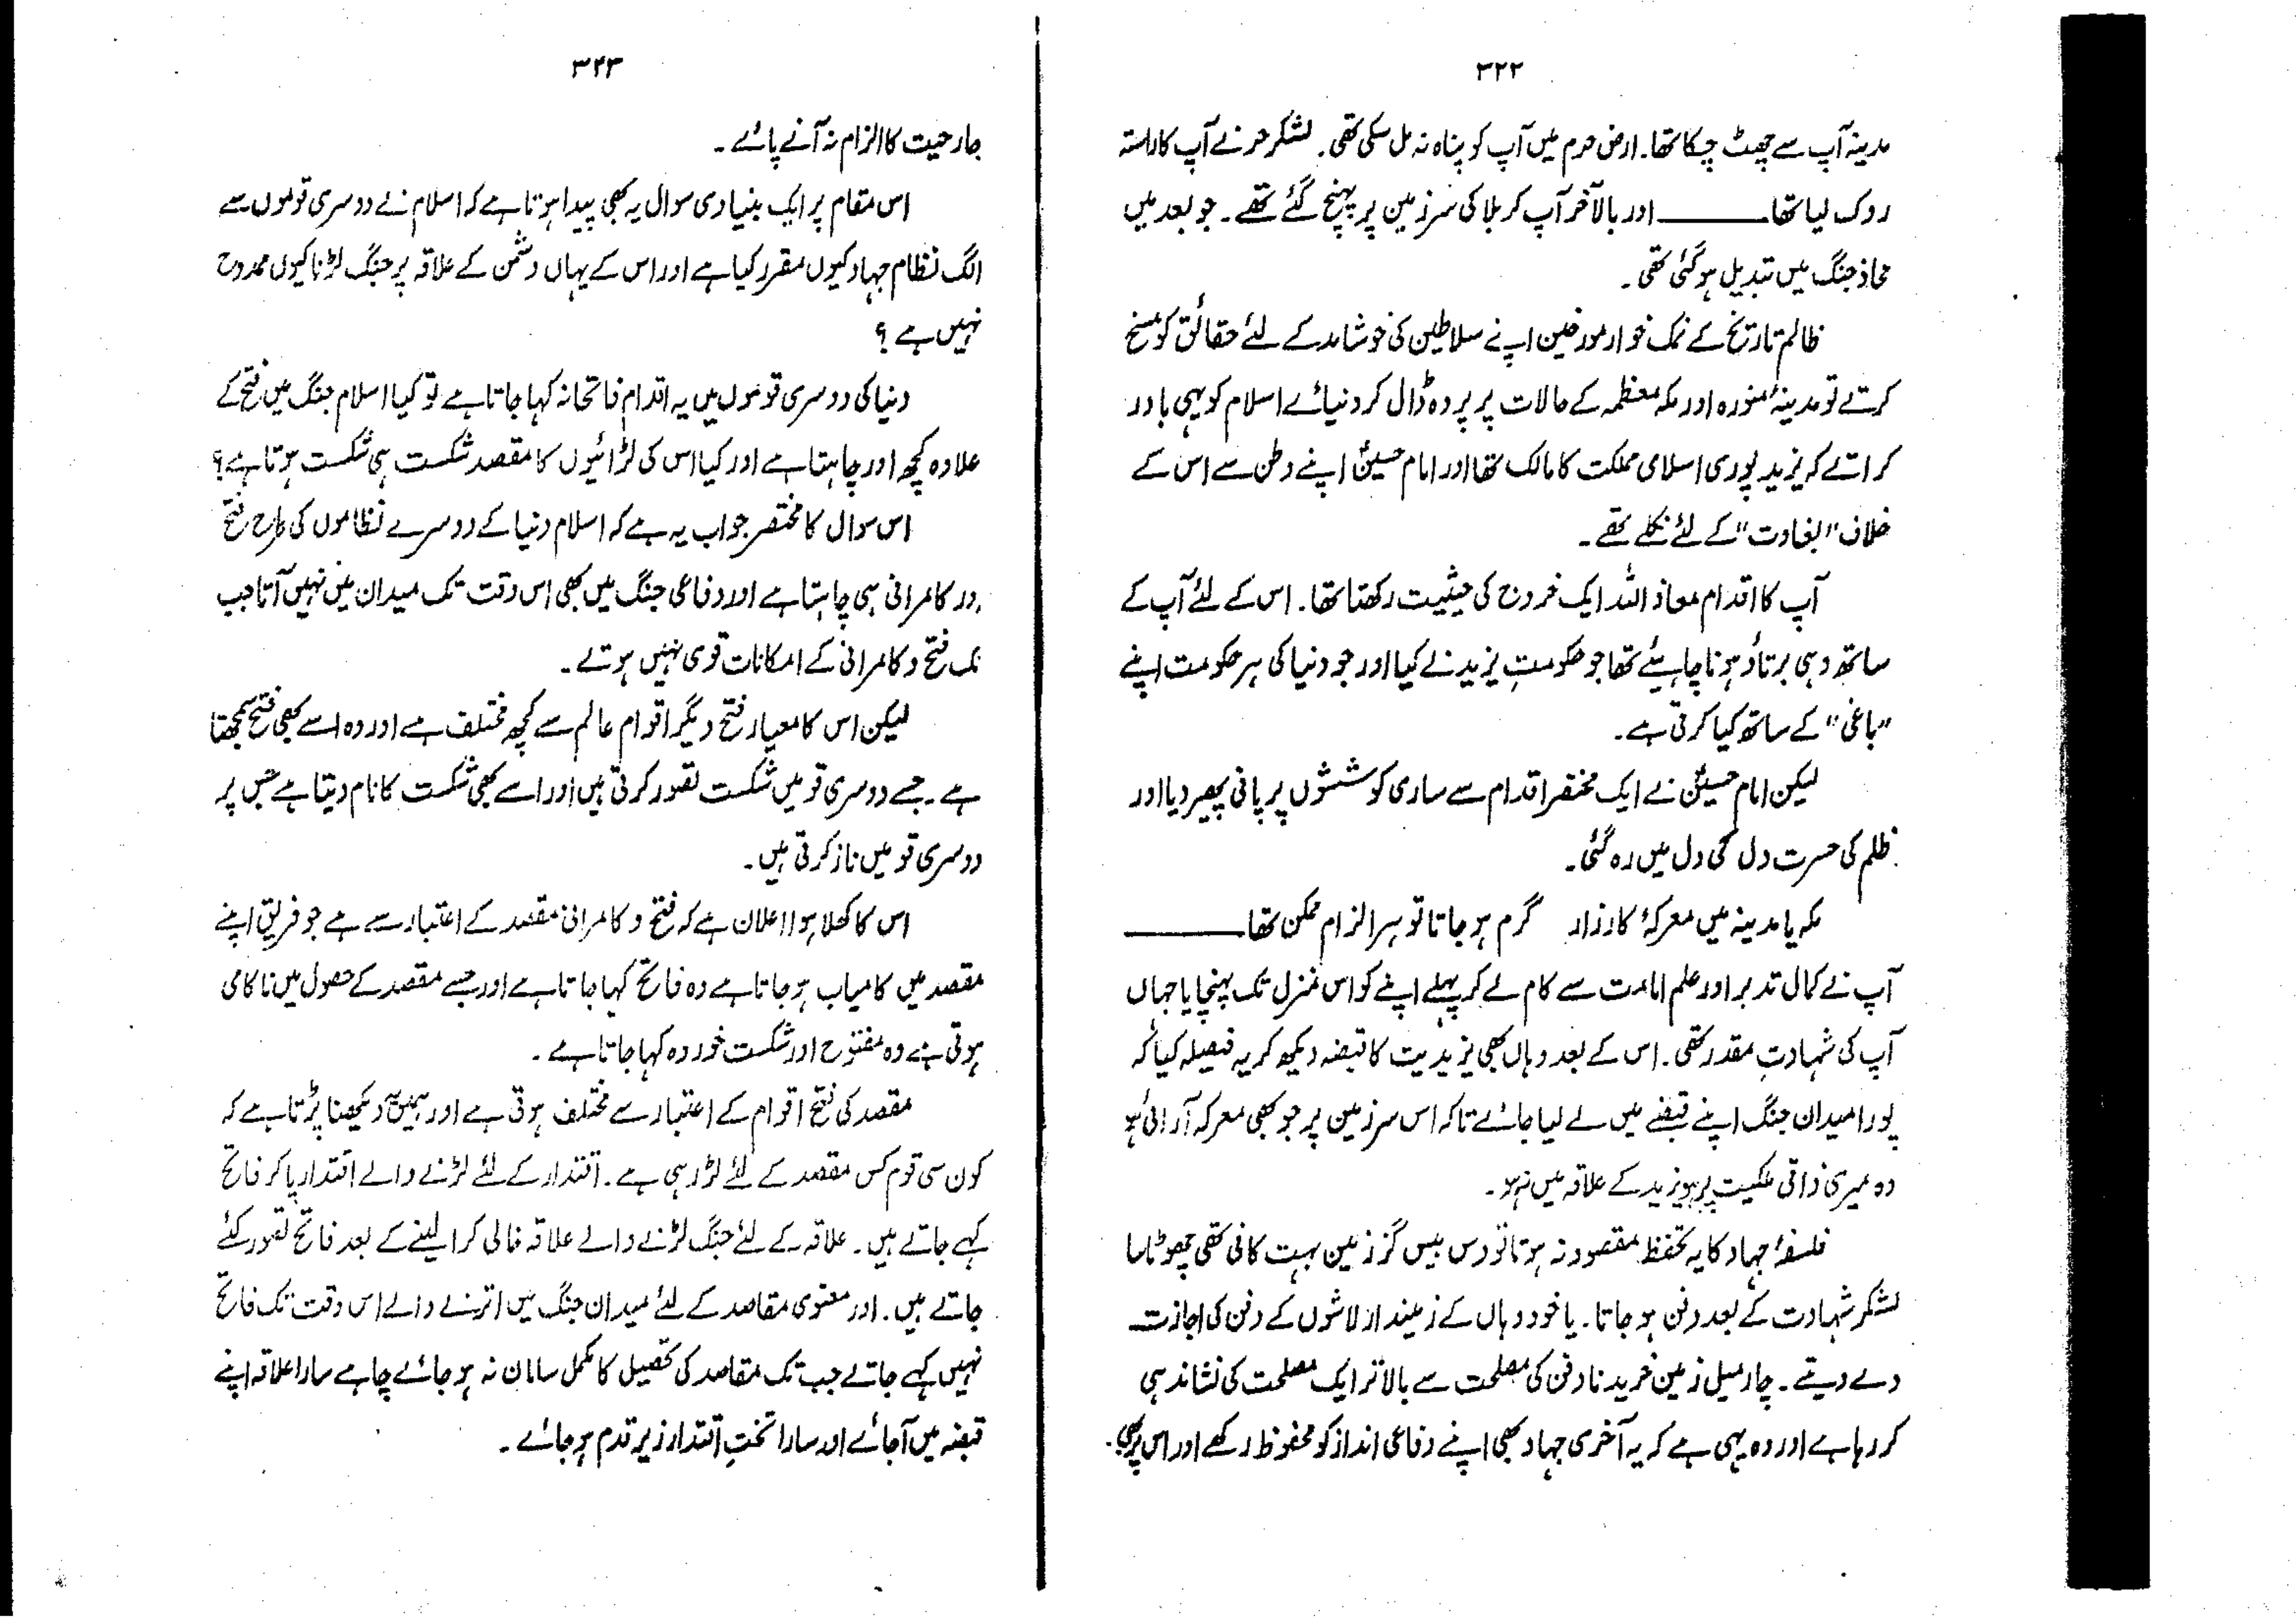 ۳۲۲
مدینہ آپ سے چھٹ چکا تھا۔ ارض حرم میں آپ کو پناہ نہ مل سکی تھی۔ لشکر حر نے آپ کا راستہ
روک لیا تھا ــــــــ اور بالآخر آپ کربلا کی سرزمین پر پہنچ گئے تھے۔ جو بعد میں
محاذ جنگ میں تبدیل ہو گئی تھی۔
ظالم تاریخ کے نمک خوار مورخین اپنے سلاطین کی خوشامد کے لئے حقائق کو مسخ
کرتے تو مدینۂ منورہ اور مکہ معظمہ کے حالات پر پردہ ڈال کر دنیائے اسلام کو یہی باور
کراتے کہ یزید پوری اسلامی مملکت کا مالک تھا اور امام حسینؑ اپنے وطن سے اس کے
خلاف "بغاوت" کے لئے نکلے تھے۔
آپ کا اقدام معاذ اللہ ایک خروج کی حیثیت رکھتا تھا۔ اس کے لئے آپ کے
ساتھ وہی برتاؤ ہونا چاہیئے تھا جو حکومتِ یزید نے کیا اور جو دنیا کی ہر حکومت اپنے
"باغی" کے ساتھ کیا کرتی ہے۔
لیکن امام حسینؑ نے ایک مختصر اقدام سے ساری کوششوں پر پانی پھیر دیا اور
ظلم کی حسرت دل کی دل میں رہ گئی۔
مکہ یا مدینہ میں معرکۂ کارزار گرم ہو جاتا تو ہر الزام ممکن تھا ــــــــ
آپ نے کمال تدبر اور علم امامت سے کام لے کر پہلے اپنے کو اس منزل تک پہنچایا جہاں
آپ کی شہادت مقدر تھی۔ اس کے بعد وہاں بھی یزیدیت کا قبضہ دیکھ کر یہ فیصلہ کیا کہ
پورا میدان جنگ اپنے قبضے میں لے لیا جائے تاکہ اس سرزمین پر جو بھی معرکہ آرائی ہو
وہ میری ذاتی ملکیت پر ہو یزید کے علاقہ میں نہ ہو۔
فلسفۂ جہاد کا یہ تحفظ مقصود نہ ہوتا تو دس بیس گز زمین بہت کافی تھی چھوٹا سا
لشکر شہادت کے بعد دفن ہو جاتا۔ یا خود وہاں کے زمیندار لاشوں کے دفن کی اجازت
دے دیتے۔ چار میل زمین خریدنا دفن کی مصلحت سے بالاتر ایک مصلحت کی نشاندہی
کر رہا ہے اور وہ یہی ہے کہ یہ آخری جہاد بھی اپنے دفاعی انداز کو محفوظ رکھے اور اس پر بھی
۳۲۳
جارحیت کا الزام نہ آنے پائے۔
اس مقام پر ایک بنیادی سوال یہ بھی پیدا ہوتا ہے کہ اسلام نے دوسری قوموں سے
الگ نظام جہاد کیوں مقرر کیا ہے اور اس کے یہاں دشمن کے علاقہ پر جنگ لڑنا کیوں ممدوح
نہیں ہے؟
دنیا کی دوسری قوموں میں یہ اقدام فاتحانہ کہا جاتا ہے تو کیا اسلام جنگ میں فتح کے
علاوہ کچھ اور چاہتا ہے اور کیا اس کی لڑائیوں کا مقصد شکست ہی شکست ہوتا ہے؟
اس سوال کا مختصر جواب یہ ہے کہ اسلام دنیا کے دوسرے نظاموں کی طرح فتح
ور کامرانی ہی چاہتا ہے اور دفاعی جنگ میں بھی اس وقت تک میدان میں نہیں آتا جب
تک فتح و کامرانی کے امکانات قوی نہیں ہوتے۔
لیکن اس کا معیار فتح دیگر اقوام عالم سے کچھ مختلف ہے اور وہ اسے بھی فتح سمجھتا
ہے۔ جسے دوسری قومیں شکست تصور کرتی ہیں اور اسے بھی شکست کا نام دیتا ہے جس پر
دوسری قومیں ناز کرتی ہیں۔
اس کا کھلا ہوا اعلان ہے کہ فتح و کامرانی مقصد کے اعتبار سے ہے جو فریق اپنے
مقصد میں کامیاب ہو جاتا ہے وہ فاتح کہا جاتا ہے اور جسے مقصد کے حصول میں ناکامی
ہوتی ہے وہ مفتوح اور شکست خوردہ کہا جاتا ہے۔
مقصد کی فتح اقوام کے اعتبار سے مختلف ہوتی ہے اور ہمیں یہ دیکھنا پڑتا ہے کہ
کون سی قوم کس مقصد کے لئے لڑ رہی ہے۔ اقتدار کے لئے لڑنے والے اقتدار پا کر فاتح
کہے جاتے ہیں۔ علاقہ کے لئے جنگ لڑنے والے علاقہ خالی کرا لینے کے بعد فاتح تصور کئے
جاتے ہیں۔ اور معنوی مقاصد کے لئے میدان جنگ میں اترنے والے اس وقت تک فاتح
نہیں کہے جاتے جب تک مقاصد کی تحصیل کا مکمل سامان نہ ہو جائے چاہے سارا علاقہ اپنے
قبضہ میں آجائے اور سارا تختِ اقتدار زیر قدم ہو جائے۔